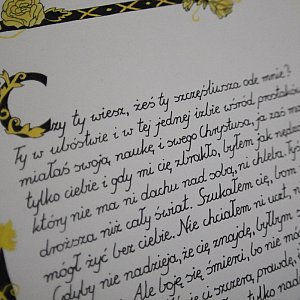 Czy ty wiesz, żeś ty szczęśliwsza ode mnie?
Ty w ubóstwie i w tej jednej izbie wśród prostaków
miałaś swoją naukę i swego Chrystusa, ja zaś mam
tylko ciebie i gdy mi cię zbrakło, byłem jak nędzarz
który nie ma ni dachu nad sobą, ni chleba. Tyś
droższa niż cały świat. Szukałem cię, bom
mógł żyć bez ciebie. Nie chciałem ni uczt, n
Gdyby nie nadzieja, że cię znajdę, byłbym
Ale boję się śmierci, bo nie mó
ci szczerą prawdę,